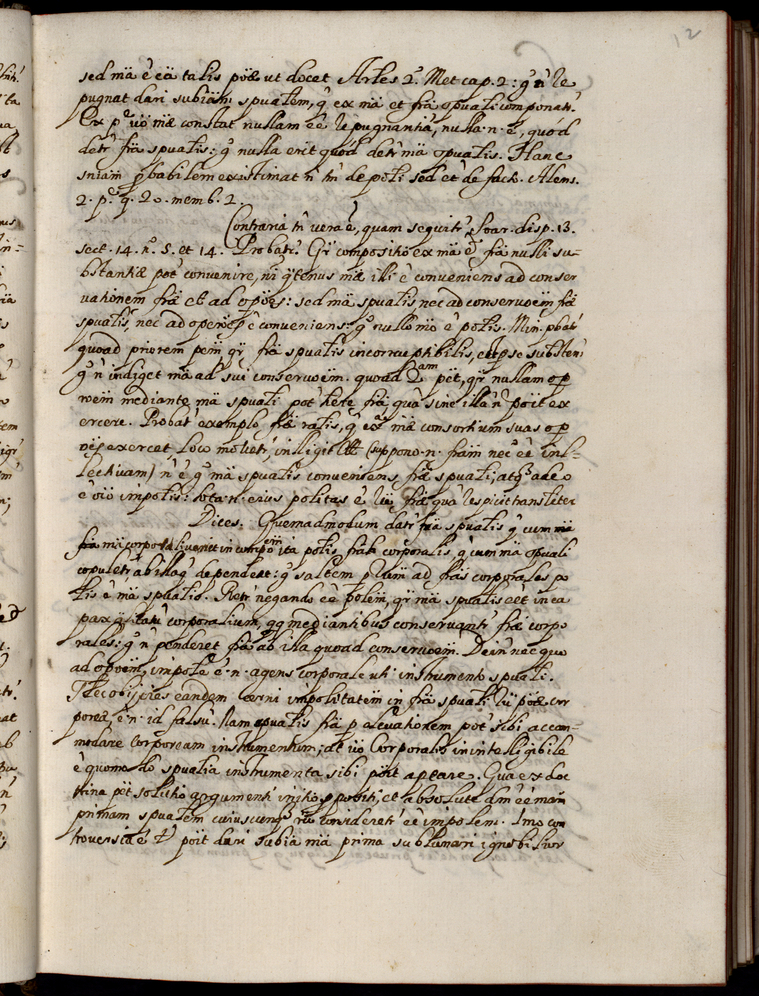 12
sed mã è eã talis põæ ut docet Arles 2º. Met cap. 2: gº ñ re
pugnat dari subiam spualem, q̃ ex mã et frã spuali componat.
Ex pº uõ mæ constat nullam eẽ repugnantiã, nulla. n. ẽ, quod
detr̃ frã spualis: gº nulla erit quod detr̃ mã spualis. Hanc
sniam ꝓbabilem existimat ñ tñ de poli sed et de fact. Alens.
2. p. q. 20. memb. 2.
Contraria tñ vera ẽ, quam sequitr̃ Soar. disp. 13.
sect. 14. nº. 5. et 14. Probatr̃. Qr̃ compositio ex mã et frã nulli su-
bstantiæ pot̃ convenire, ni q̃tenus mã illi ẽ conveniens ad conser
vationem fræ et ad opões: sed mã spualis nec ad conservoẽm fræ
spualis, nec ad operoẽs ẽ conveniens: gº nullo mõ ẽ polis. Min. pbat
quoad priorem pem qr̃ frã spualis incorruptibilis, et ꝑ se subsistens
gº ñ indiget mã ad sui conservoẽm. quoad 2am pet, qr̃ nullam op
roẽm mediante mã spuali pot̃ hẽre frã quã sine illa ñ poit ex
ercere. Probat exemplo fræ ralis, q̃ ex mã consortium suas op
oẽs exercet, loco movetr̃, intelligit &c (suppono. n. frãm nec eẽ intel-
lectivam) ñ ẽ gº mã spualis conveniens fræ spuali, atq̃ adeo
ẽ oïo impolis: tota. n. eius politas ẽ in frã qua respicit transliter
Dices. Quemadmodum datr̃ frã spualis q̃ cum mã
corporali ita polis frã corporalis, q̃ cum mã spuali
copuletr̃ ab illaq̃ dependeat: gº saltem ad fras corporales po
lis ẽ mã spualis. Retr̃ negando eẽ polem, qr̃ mã spualis eet inca
pax q̃litatũ corporalium, qq mediantibus conservantr̃ fræ corpo
rales: gº ñ penderet frã ab illa quoad conservoẽm. Dein nec quo
ad opoẽm, impole ẽ. n. agens corporale uti instrumento spuali.
Nec obijcies eandem cerni impolitatem in frã spuali cor
poreã, ẽ. n. id falsũ. Nam spualis frã p alevationem pot̃ sibi accom-
modare corpoream instrumentum; at uõ Corporalis inintelligibile
ẽ quomodo spualia instrumenta sibi poit aptare. Qua ex doc
trina pet solutio argumenti initio ppositi, et absolute dm̃ eẽ mãm
primam spualem cuiuscunq̃ considereti eẽ impolem. Imo con
troversiã ẽ poit dari subiã mã prima sublunari ignobilior